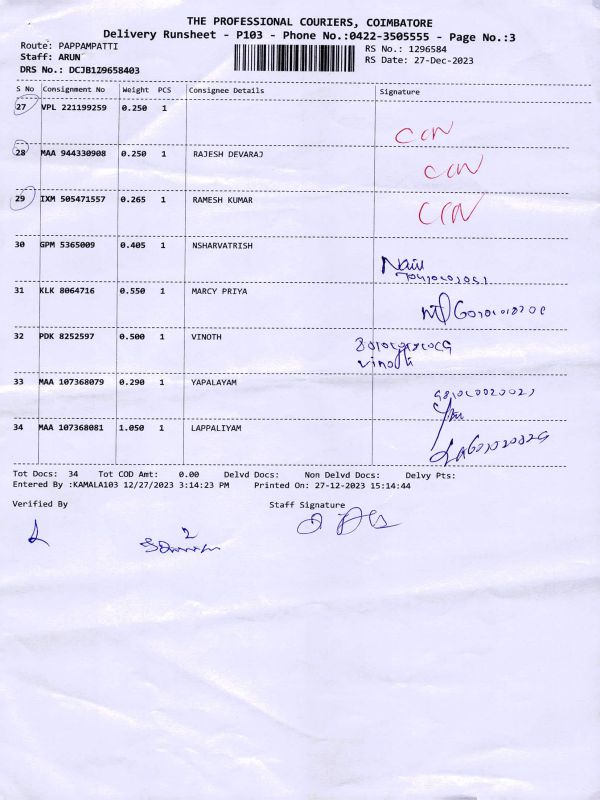 THE PROFESSIONAL COURIERS, COIMBATORE
Delivery Runsheet - P103 - Phone No.:0422-3505555 - Page No.:3
Route: PAPPAMPATTI RS No.: 1296584
Staff: ARUN RS Date: 27-Dec-2023
DRS No.: DCJB1Z9658403
S No Consignment No Weight PCS Consignee Details Signature
27 VPL 221199259 0.250 1
28 MAA 944330908 0.250 1 RAJESH DEVARAJ
29 IXM 505471557 0.265 1 RAMESH KUMAR
30 GPM 5365009 0.405 1 NSHARVATRISH
31 KLK 8064716 0.550 1 MARCY PRIYA
32 PDK 8252597 0.500 1 VINOTH
vinoth
33 MAA 107368079 0.290 1 YAPALAYAM
34 MAA 107368081 1.050 1 LAPPALIYAM
Tot Docs: 34 Tot COD Amt: 0.00 Delvd Docs: Non Delvd Docs: Delvy Pts:
Entered By :KAMALA103 12/27/2023 3:14:23 PM Printed On: 27-12-2023 15:14:44
Verified By Staff Signature